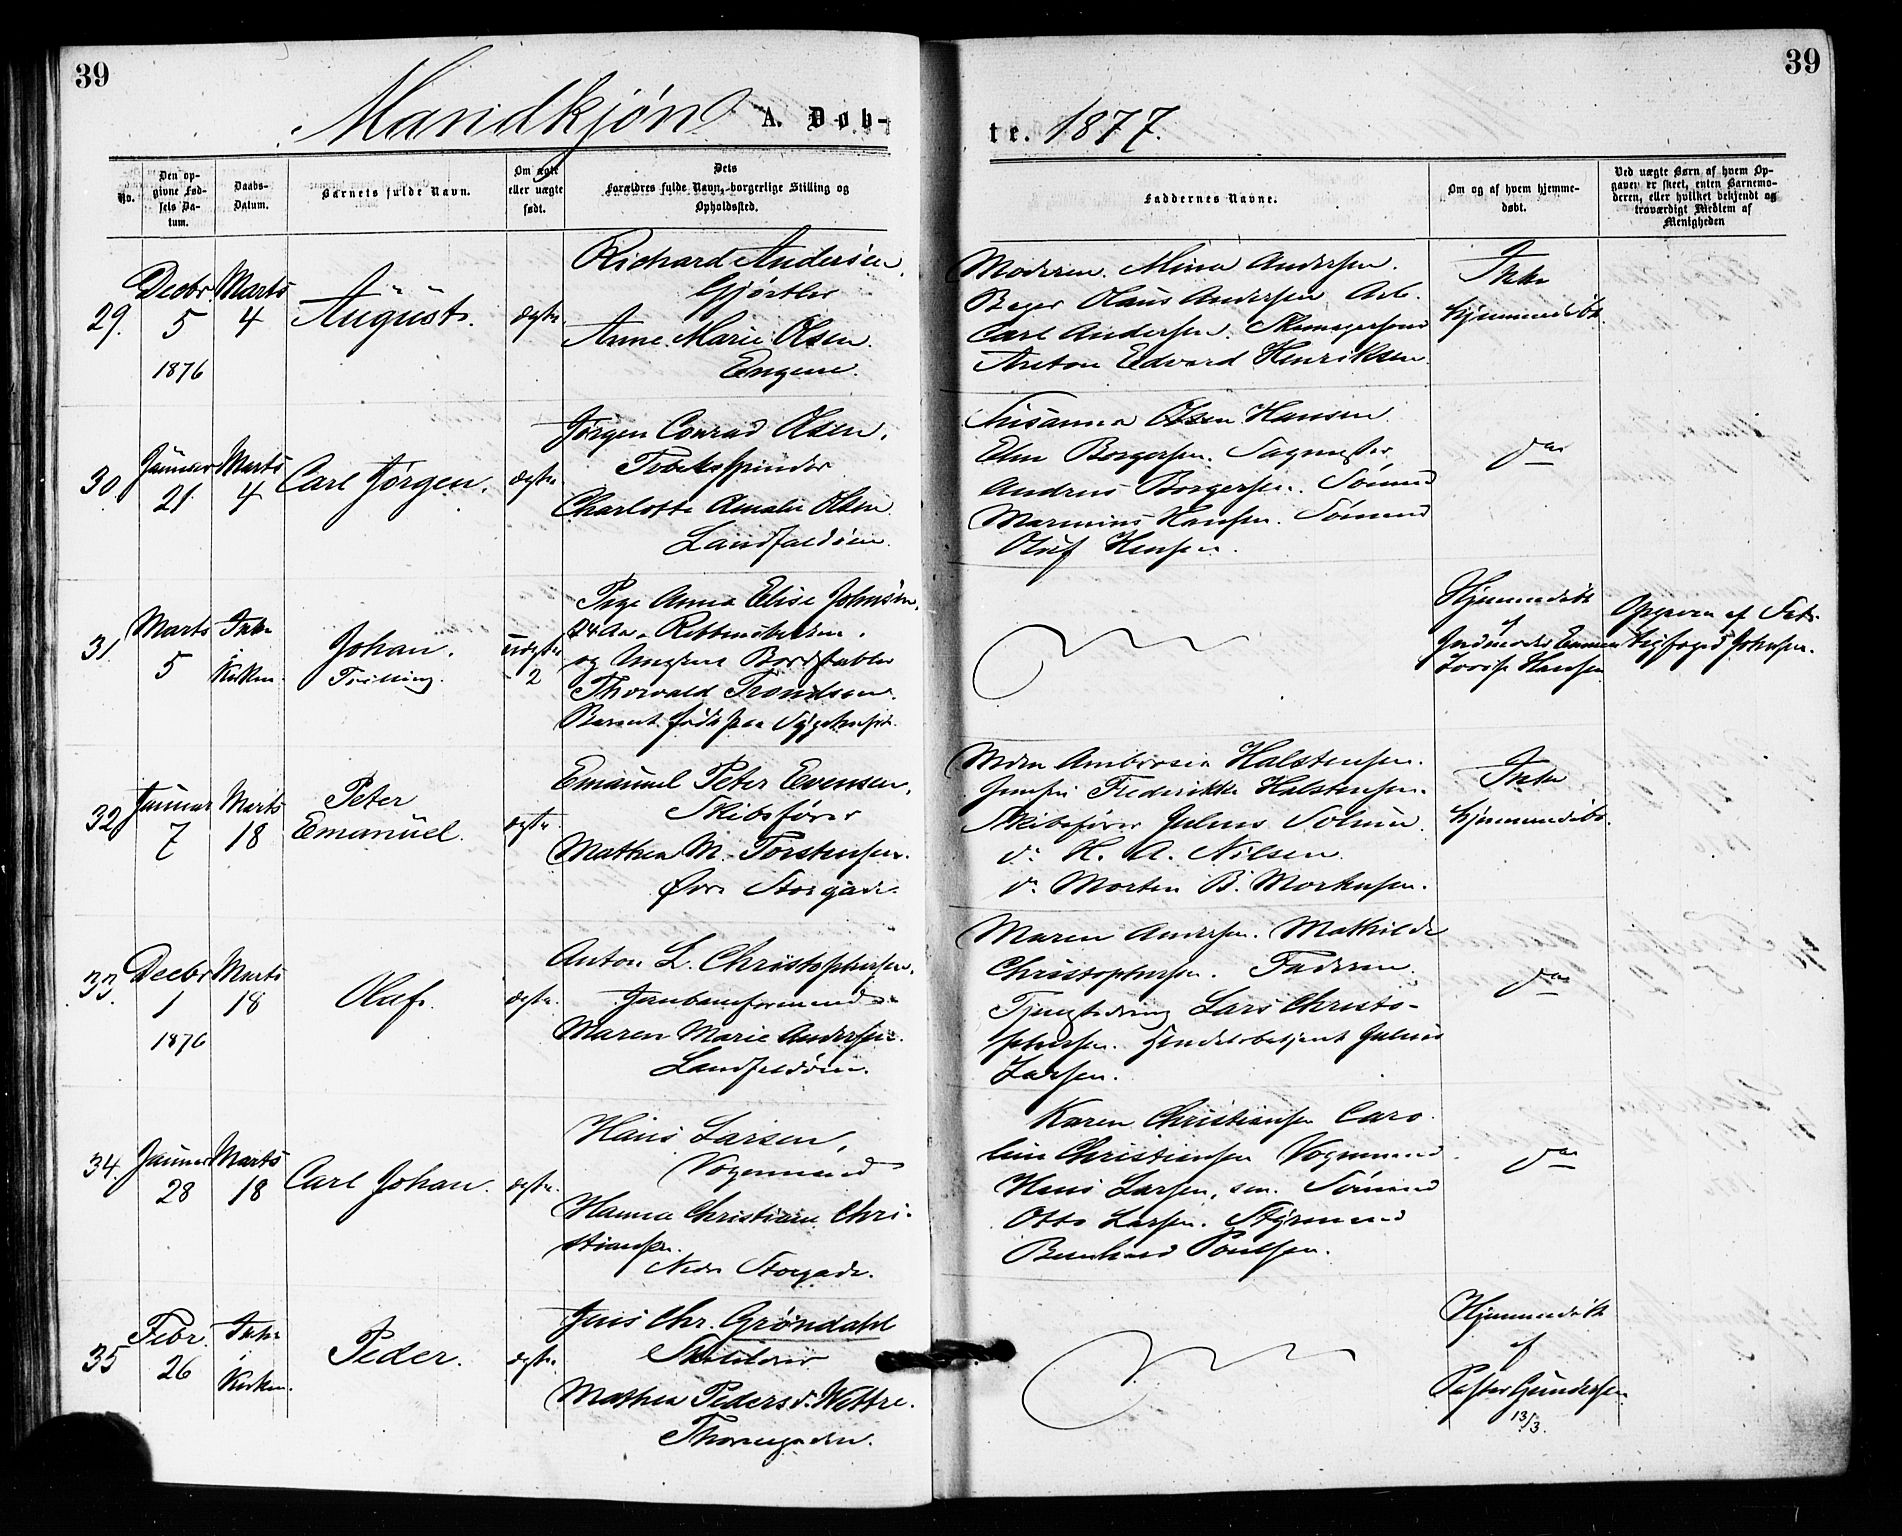 39
39
Mandkjøn A. Døb-
te. 1877.
No.
Den op-
givne Fød-
sels Da-
tum.
Daabs-
Datum.
Barnets fulde Navn.
Om ægte
eller uægte
født.
Dets
Forældres fulde Navn, borgerlige Stilling og
Opholdssted.
Faddernes Navne.
Om og af hvem hjemme-
døbt.
Ved uægte Børn af hvem Op-
gaven er skeet, enten Barnemo-
deren, eller hvilket bekjendt og
troværdigt Medlem af
Menigheden
29.
Decbr
5
1876
Marts
4
August.
ægte.
Richard Andersen,
Gjørtler
Anne Marie Olsen.
Engene.
Moderen. Mina Andersen.
Bager Olaus Andersen Arb.
Carl Andersen. Skomagersvend
Anton Edvard Henriksen.
Ikke
hjemmedøbt.
30
Januar
21
Marts
4
Carl Jørgen.
ægte.
Jørgen Conrad Olsen,
Tobakspinder
Charlotte Amalie Olsen
Landfaldøen.
Susanna Olsen Hansen
Elen Borgersen. Sagmester
Andreas Borgersen. Sømand
Marinius Hansen. Sømand
Oluf Hansen.
do
31
Marts
5
Ikke
i
Kirken.
Johan.
Tvilling.
uægte
2
Pige Anna Elise Johnsen,
24 Aar
og Ungkarl Bordstabler
Thorvald Trondsen.
Barnet født paa Sygehuset.
Hjemmedøbt
af
Jordmoder
Lovise Hansen
Opgaven af
Johnsen.
32
Januar
7
Marts
18
Peter
Emanuel.
ægte.
Emanuel Peter Evensen,
Skibsfører
Mathea M. Torstensen.
Øvre Storgade.
Ambrosia Halstensen.
Frederikke Halstensen.
Skibsfører Julius
do H. A. Nilsen.
do Morten B. Morkusen.
Ikke
hjemmedøbt.
33.
Decbr
1
1876
Marts
18
Olaf.
ægte.
Anton L. Christophersen,
Jernbaneformand
Maren Marie Andersen.
Landfaldøen.
Maren Andersen. Mathilde
Christophersen. Faderen.
Lars Christo-
phersen. Handelsbetjent Julius
Larsen.
do
34.
Januar
28
Marts
18
Carl Johan.
ægte.
Hans Larsen,
Vognmand
Hanna Christiane Chri-
stiansen.
Nedre Storgade.
Karen Christiansen Caro
line Christiansen Vognmand
Hans Larsen, sen. Sømand
Otto Larsen. Styrmand
Bernhard Poulsen.
do
35
Febr.
26
Ikke
i
Kirken.
Peder.
ægte.
Jens Chr. Grøndahl
Skolelærer
Mathea Pedersd. Wettre.
Thornegaden.
Hjemmedøbt
af
Pastor Gundersen
13/3.